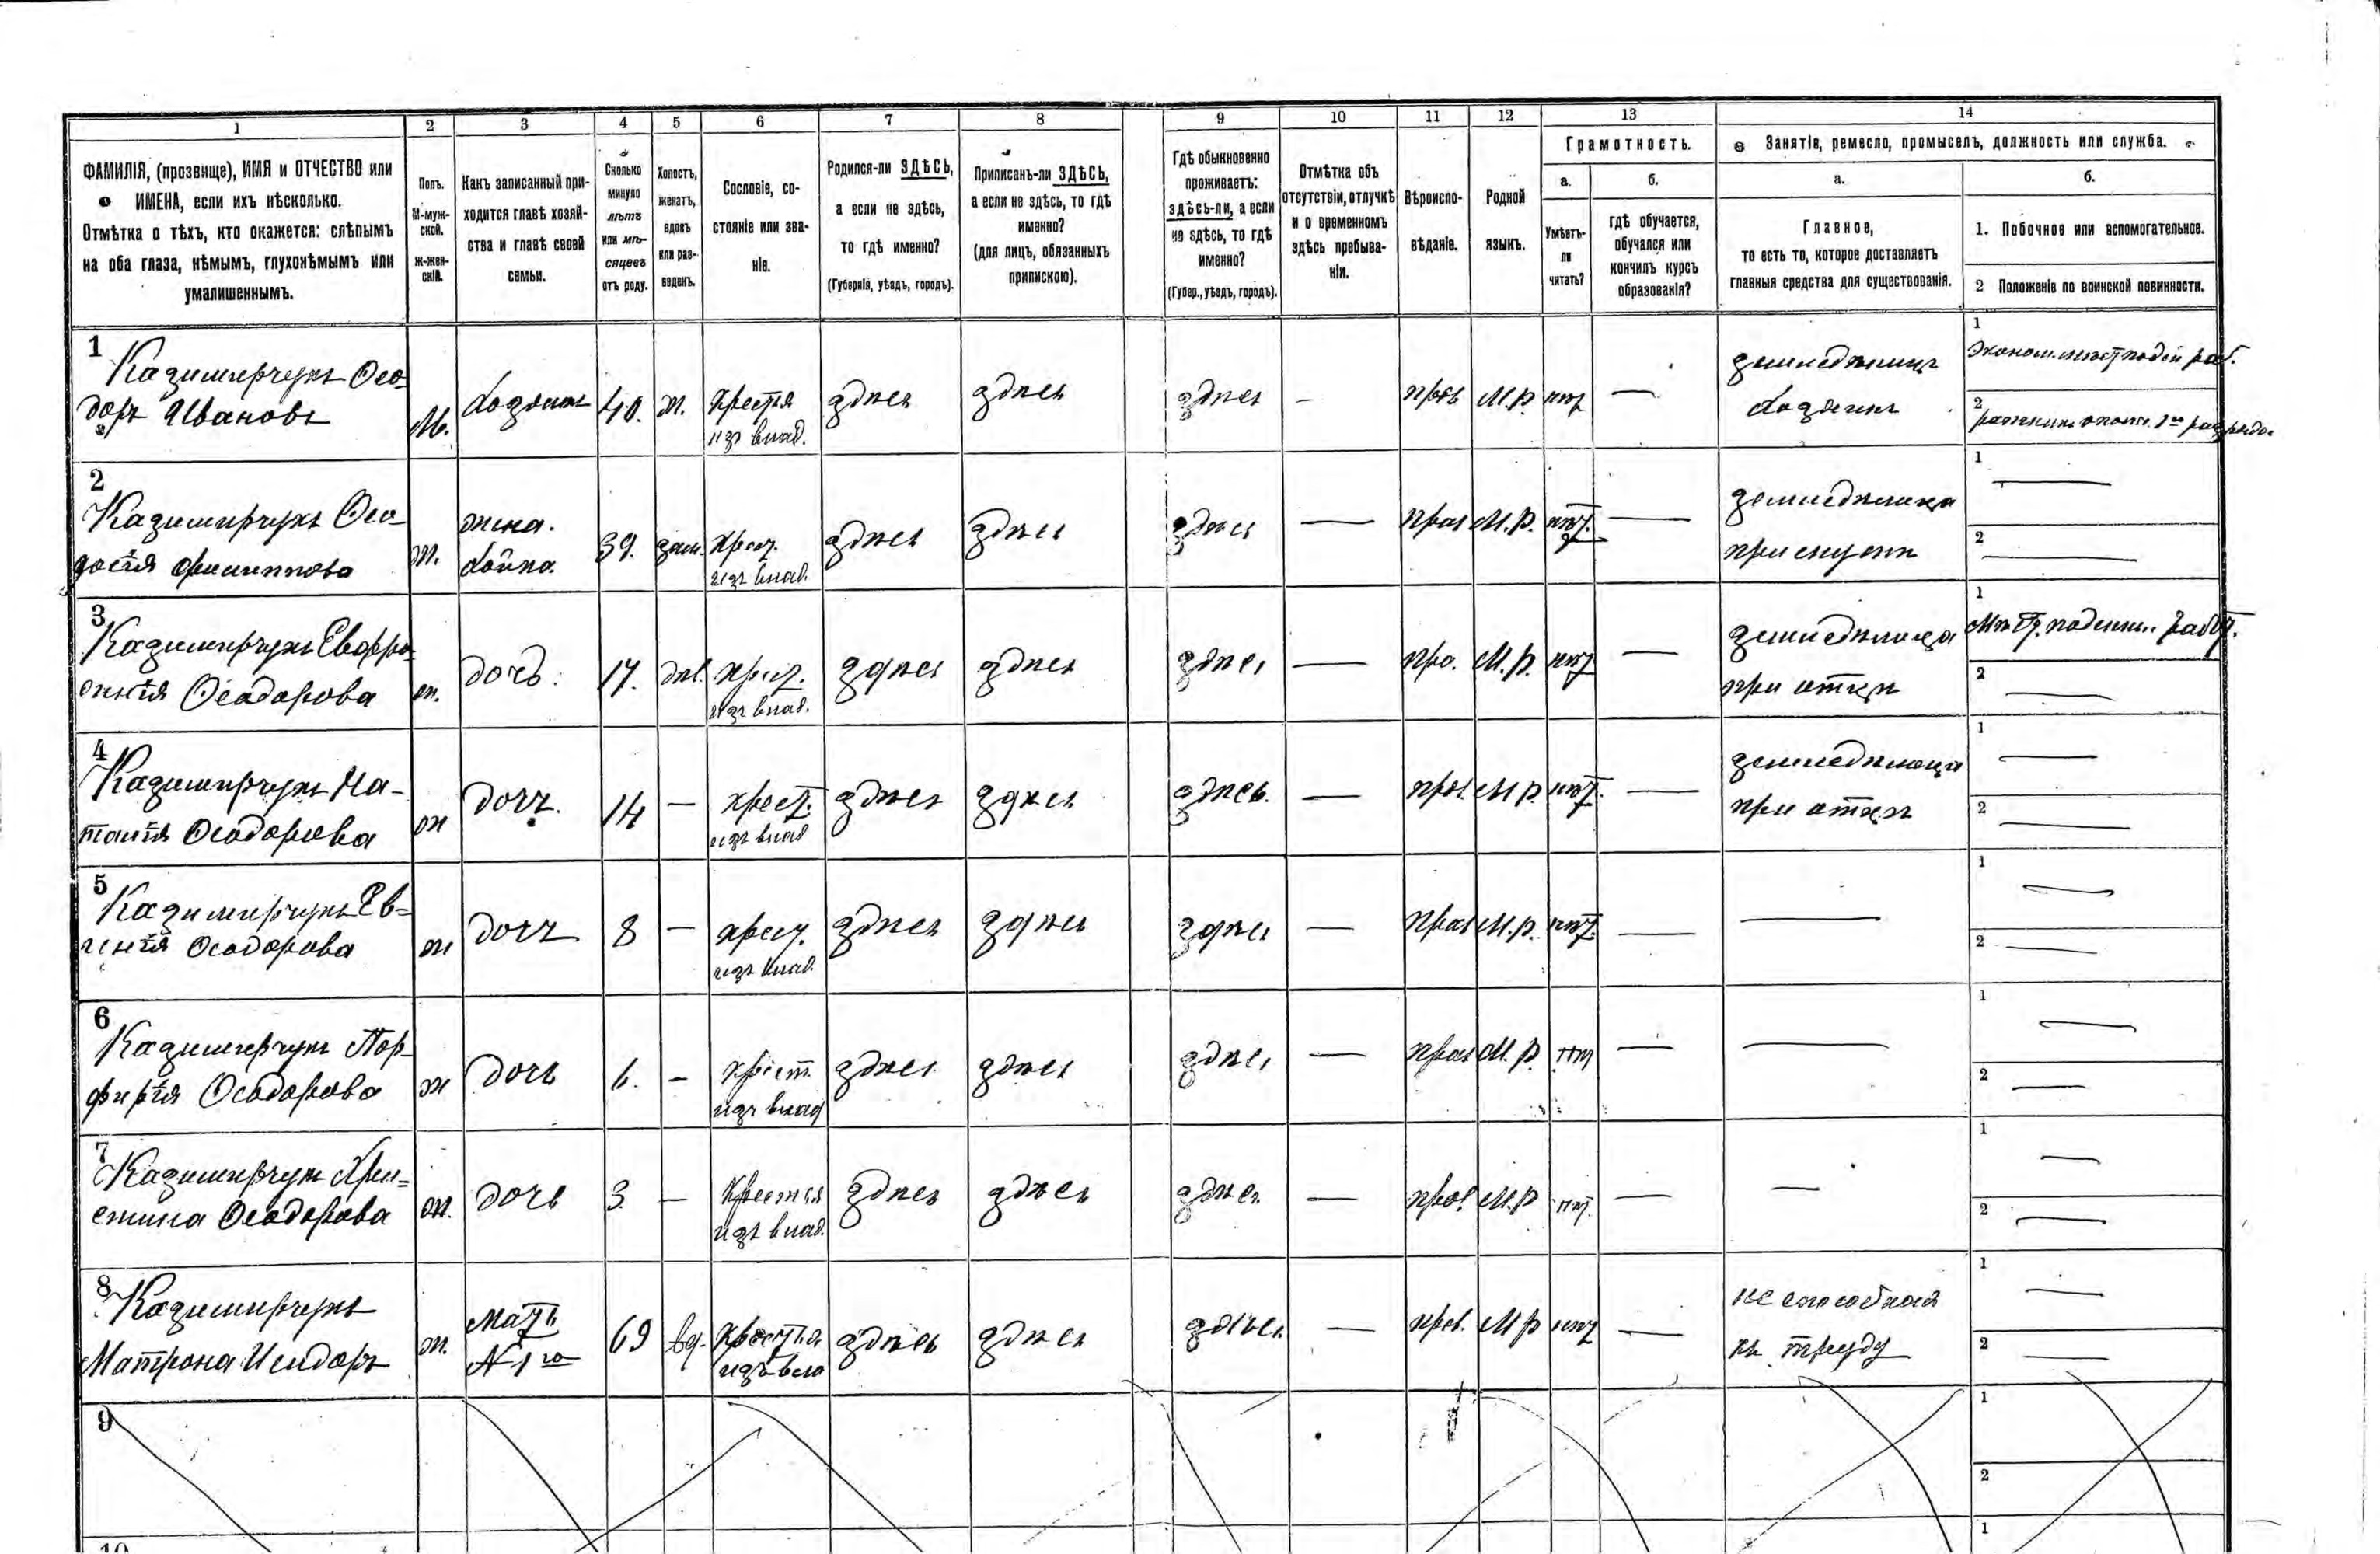 1
2
3
4
5
6
7
8
9
10
11
12
13
14
ФАМИЛІЯ, (прозвище), ИМЯ и ОТЧЕСТВО или
ИМЕНА, если ихъ нѣсколько.
Отмѣтка о тѣхъ, кто окажется: слѣпымъ
на оба глаза, нѣмымъ, глухонѣмымъ или
умалишеннымъ.
Полъ.
М-муж-
ской.
ж-жен-
скій.
Какъ записанный при-
ходится главѣ хозяй-
ства и главѣ своей
семьи.
Сколько
минуло
лѣтъ
или мѣ-
сяцевъ
отъ роду.
Холостъ,
женатъ,
вдовъ
или раз-
веденъ.
Сословіе, со-
стояніе или зва-
ніе.
Родился-ли ЗДѢСЬ,
а если не здѣсь,
то гдѣ именно?
(Губернія, уѣздъ, городъ).
Приписанъ-ли ЗДѢСЬ,
а если не здѣсь, то гдѣ
именно?
(для лицъ, обязанныхъ
припискою).
Гдѣ обыкновенно
проживаетъ:
здѣсь-ли, а если
не здѣсь, то гдѣ
именно?
(Губер., уѣздъ, городъ).
Отмѣтка объ
отсутствіи, отлучкѣ
и о временномъ
здѣсь пребыва-
ніи.
Вѣроиспо-
вѣданіе.
Родной
языкъ.
Грамотность.
а.
Умѣетъ-
ли
читать?
б.
гдѣ обучается,
обучался или
кончилъ курсъ
образованія?
Занятіе, ремесло, промыселъ, должность или служба.
а.
Главное,
то есть то, которое доставляетъ
главныя средства для существованія.
б.
1. Побочное или вспомогательное.
2 Положеніе по воинской повинности.
1
Казимирчукъ Ѳео-
доръ Ивановъ
М.
хозяинъ
40.
ж.
крестья
изъ влад.
здѣсь
здѣсь
здѣсь
—
прав
М.р.
нѣт
—
земледѣлецъ
хозяинъ
1
2
ратникъ ополч. 1го разряда.
2
Казимирчукъ Ѳео-
досія Филиппова
ж.
жена.
39.
зам.
крест.
изъ влад.
здѣсь
здѣсь
здѣсь
—
прав
М.р.
нѣт.
—
земледѣлица
при мужѣ
1
—
2
—
3
Казимирчукъ Евфро
синія Ѳеодорова
ж.
дочь.
17.
дѣв.
крест.
изъ влад.
здѣсь
здѣсь
здѣсь
—
пра.
М.р.
нѣт
—
земледѣлица
при отцѣ
1
2
—
4
Казимирчукъ На-
талія Ѳеодорова
ж
дочь.
14
—
крест.
изъ влад
здѣсь
здѣсь
здѣсь.
—
прав.
М р
нѣт.
—
земледѣлица
при отцѣ
1
—
2
—
5
Казимирчукъ Ев=
генія Ѳеодорова
ж
дочь
8
—
крест.
изъ влад.
здѣсь
здѣсь
здѣсь
—
прав
М.р.
нѣт.
—
—
1
—
2
—
6
Казимирчукъ Пор-
фирія Ѳеодорова
ж
дочь
6.
—
крест.
изъ влад
здѣсь
здѣсь
здѣсь
—
прав
М.р.
нѣт
—
—
1
—
2
—
7
Казимирчукъ Хри=
стина Ѳеодорова
ж.
дочь
3.
—
крестья
изъ влад.
здѣсь
здѣсь
здѣсь
—
прав.
М.р
нѣт.
—
—
1
—
2
—
8
Казимирчукъ
Матрона Исидоръ
ж.
мать
№ 1го
69
вд.
крестья
изъ вла
здѣсь
здѣсь
здѣсь
—
прав.
М р
нѣт
—
не способная
къ труду
1
—
2
—
9
1
2
10
1